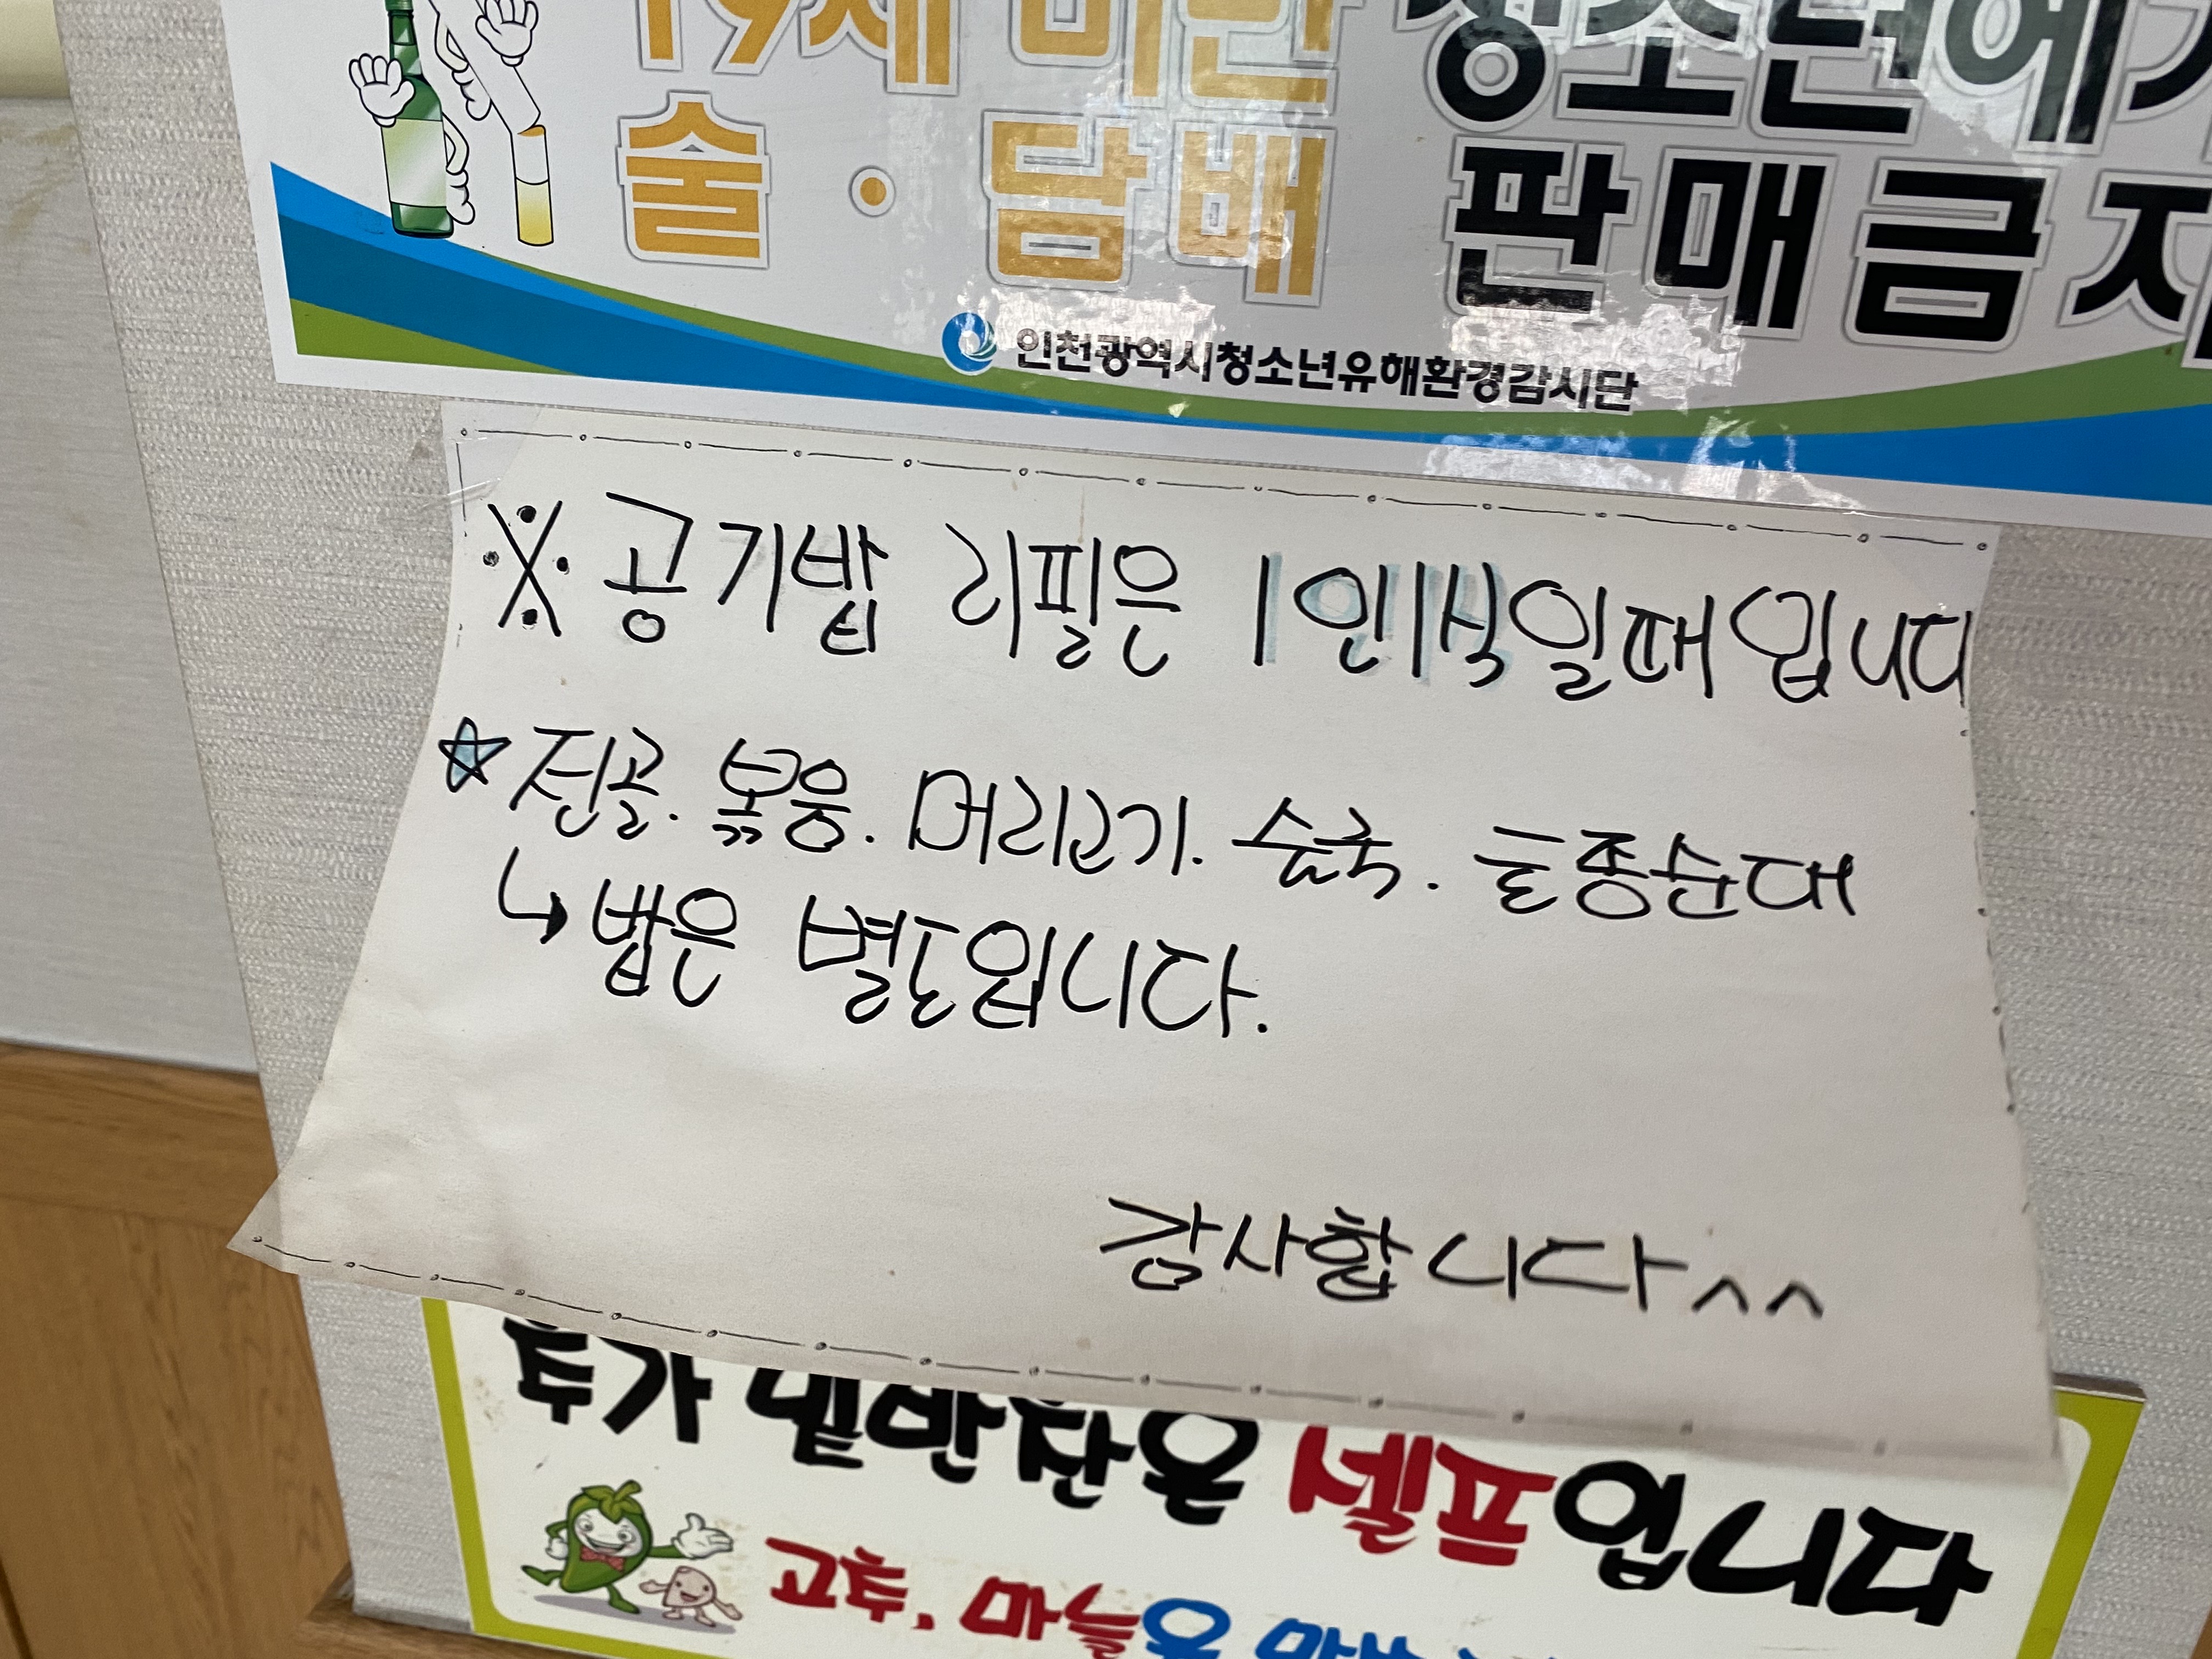 19세 미만 청소년에게
술·담배 판매금지
인천광역시청소년유해환경감시단
※ 공기밥 리필은 1인1식일때입니다
☆ 전골. 볶음. 머리고기. 술국. 토종순대
↳ 밥은 별도입니다.
감사합니다^^
추가 밑반찬은 셀프입니다
고추, 마늘은